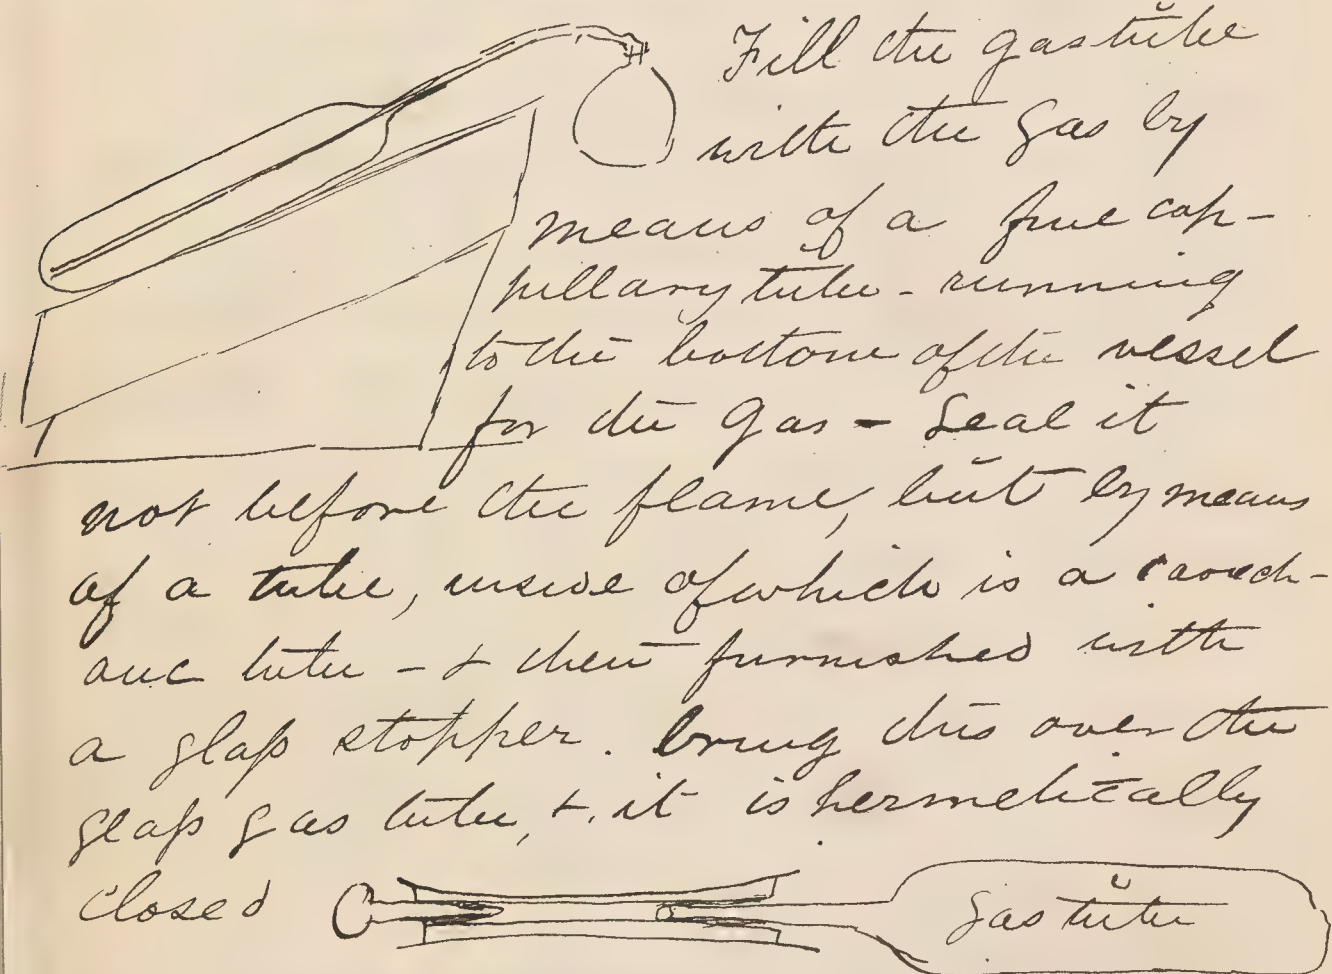 Fill the gas tube
with the gas by
means of a fine cap-
pillary tube - running
to the bottom of the vessel
for the gas - Seal it
not before the flame, but by means
of a tube, inside of which is a caouch-
ouc tube - & then furnished with
a glass stopper. bring this over the
glass gas tube, & it is hermetically
closed
gas tube